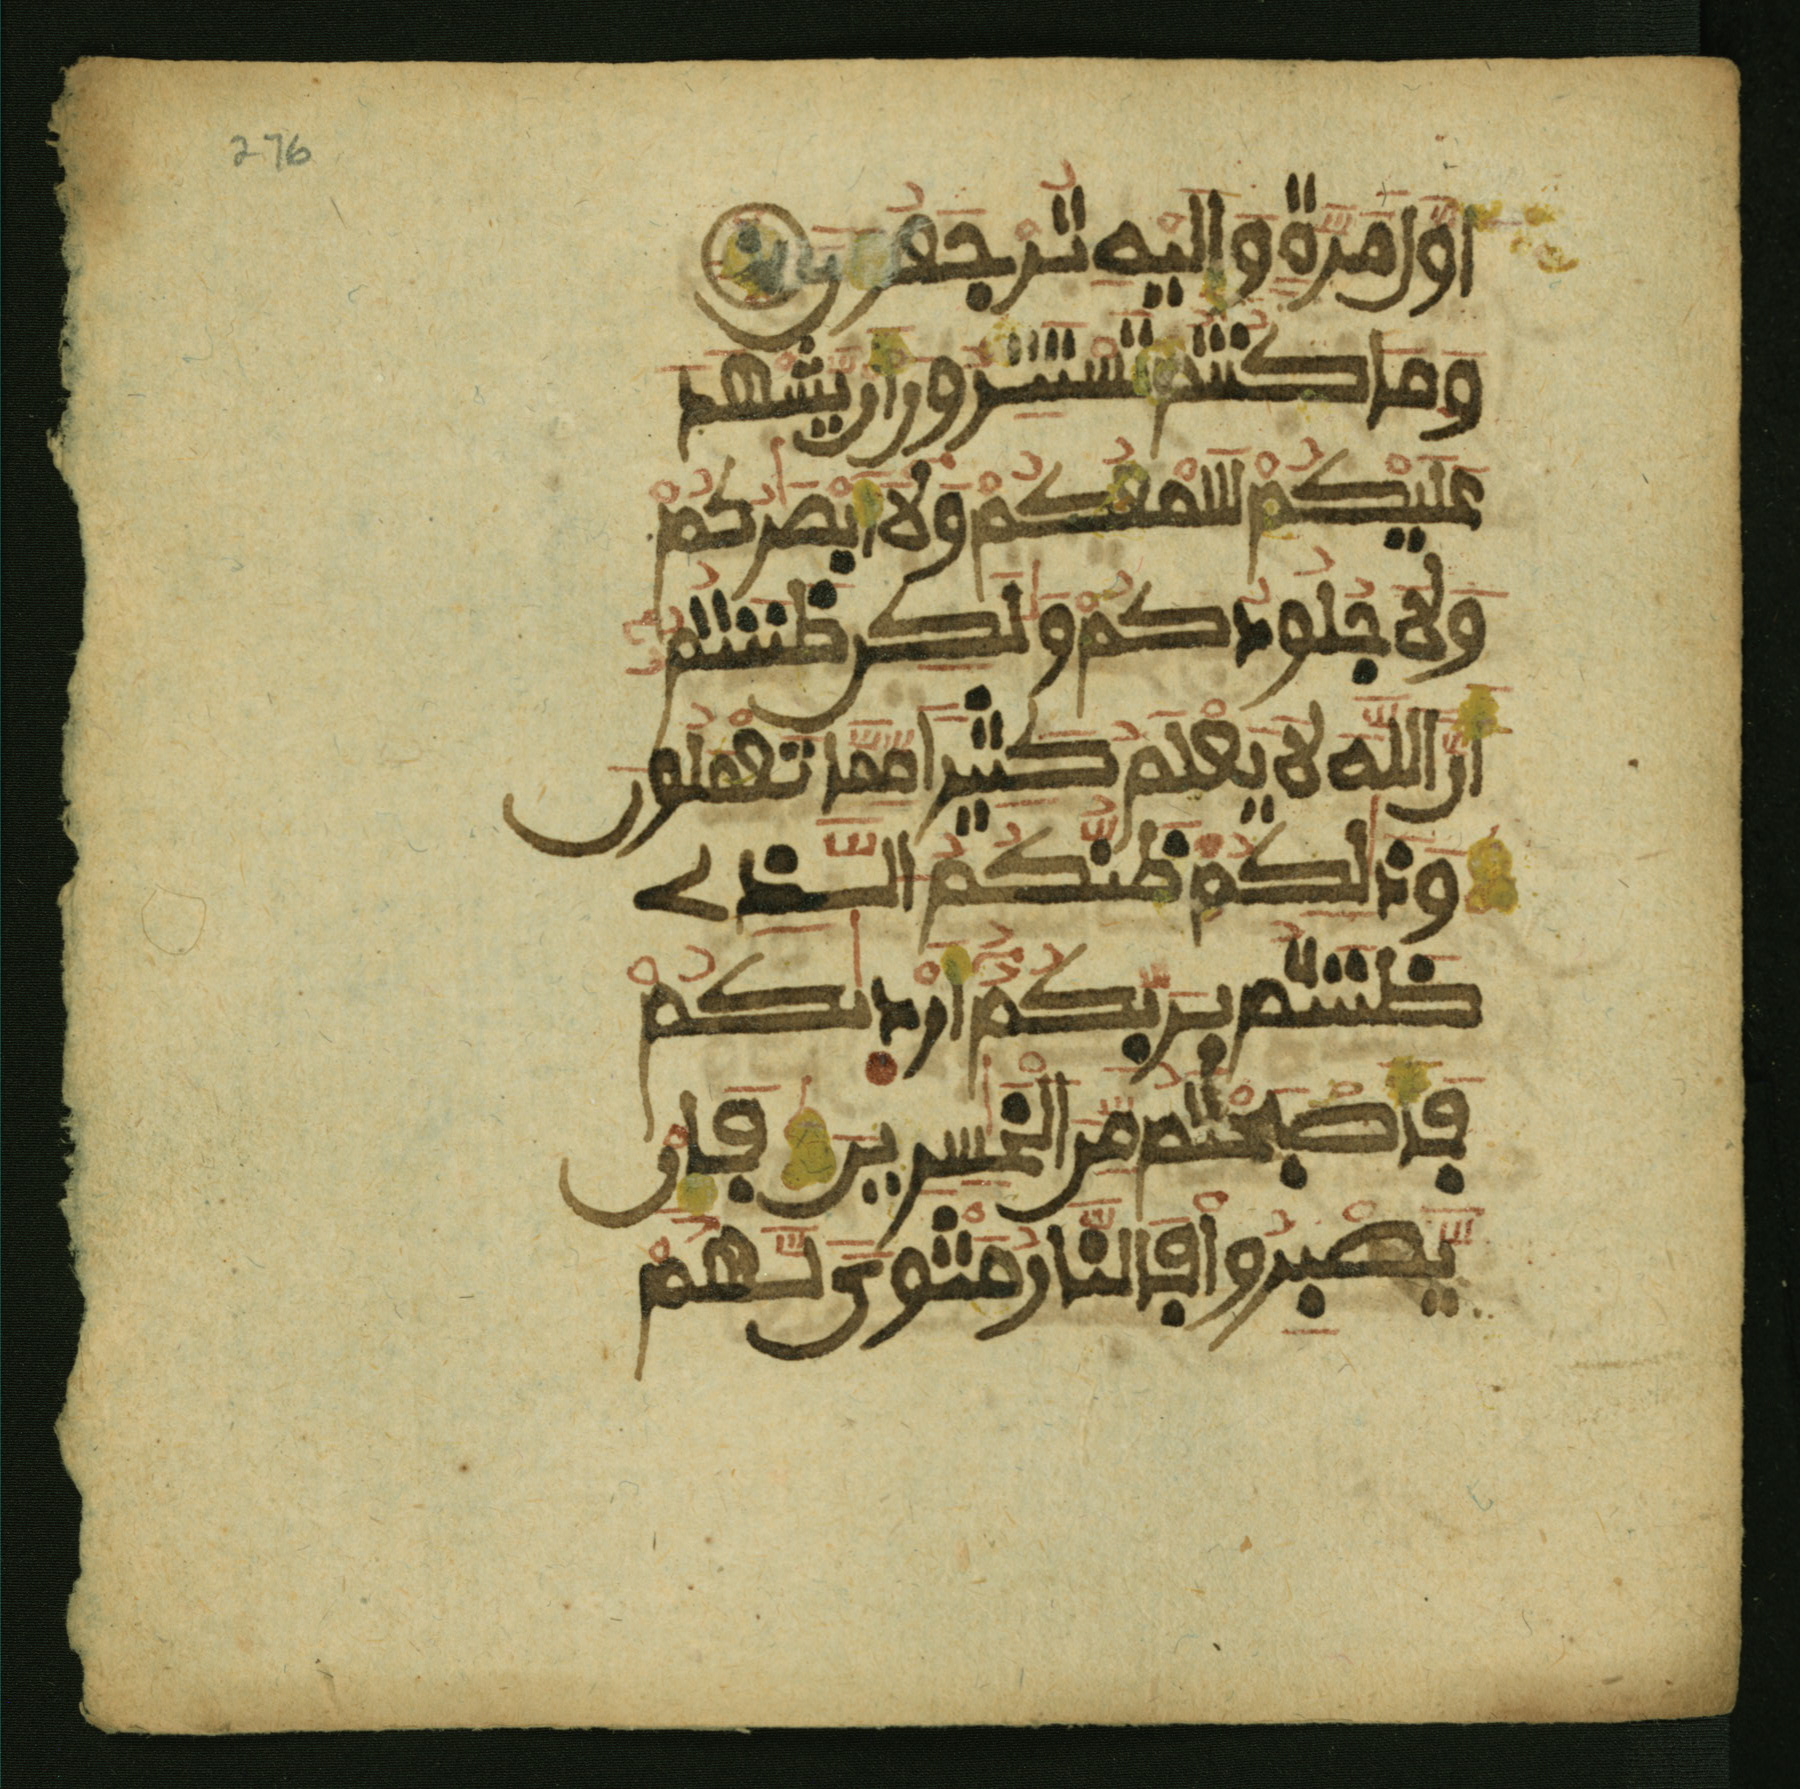 276
أَوَّلَ مَرَّةٍ وَإِلَيْهِ تُرْجَعُونَ
وَمَا كُنتُمْ تَسْتَتِرُونَ أَن يَشْهَدَ
عَلَيْكُمْ سَمْعُكُمْ وَلَا أَبْصَٰرُكُمْ
وَلَا جُلُودُكُمْ وَلَٰكِن ظَنَنتُمْ
أَنَّ اللَّهَ لَا يَعْلَمُ كَثِيرًا مِّمَّا تَعْمَلُونَ
وَذَٰلِكُمْ ظَنُّكُمُ الَّذِے
ظَنَنتُم بِرَبِّكُمْ أَرْدَىٰكُمْ
فَأَصْبَحْتُم مِّنَ الْخَٰسِرِينَ فَإِن
يَصْبِرُوا فَالنَّارُ مَثْوًى لَّهُمْ